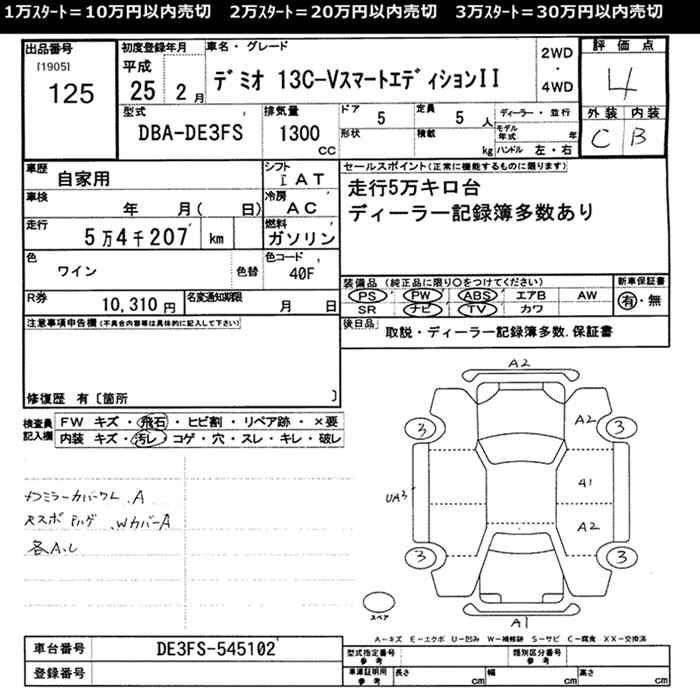 1万ｽﾀｰﾄ＝10万円以内売切　2万ｽﾀｰﾄ＝20万円以内売切　3万ｽﾀｰﾄ＝30万円以内売切
出品番号
[1905]
125
初度登録年月
平成
25 2月
車名・グレード
デミオ 13C-VスマートエディションII
2WD
・
4WD
評価点
4
外装 内装
C B
型式
DBA-DE3FS
排気量
1300
CC
ドア 5
形状
定員 5 人
積載 kg
ディーラー・並行
モデル年式 年
ハンドル 左・右
車歴
自家用
シフト
I AT
車検
年 月( 日)
冷房
AC
走行
5万4千207 km
燃料
ガソリン
色
ワイン
色替
色コード
40F
R券
10,310円
名変通知期限
月 日
セールスポイント(正常に機能するものに限ります)
走行5万キロ台
ディーラー記録簿多数あり
装備品 (純正品に限り○をつけてください)
PS PW ABS エアB AW
SR ナビ TV カワ
新車保証書
有・無
後日品
取説・ディーラー記録簿多数.保証書
注意事項申告欄(不具合内容等は具体的に記入して下さい)
修復歴 有〔箇所 〕
検査員記入欄
FW キズ・飛石・ヒビ割・リペア跡・×要
内装 キズ・汚レ・コゲ・穴・スレ・キレ・破レ
各A.L
A2
3
A2
3
UA3
A1
A2
3
3
A1
スペア
A－キズ E－エクボ U－凹み W－補修跡 S－サビ C－腐食 XX－交換済
車台番号
DE3FS-545102
登録番号
型式指定番号
参考
類別区分番号
参考
車庫証明用
参考
長さ cm
幅 cm
高さ cm